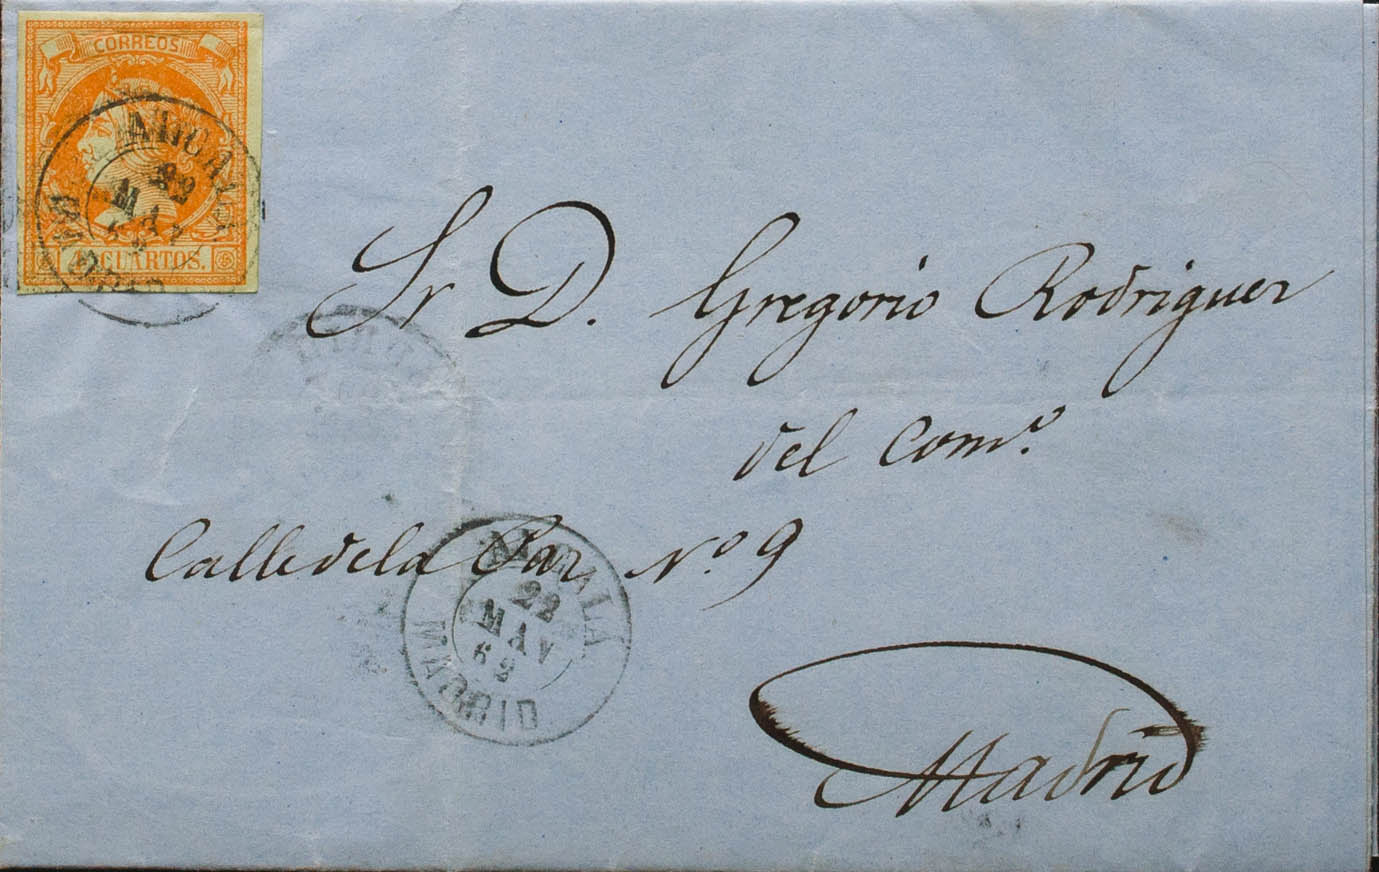 CORREOS
4 CUARTOS.
ALCALA
22
MAY
62
MADRID
Sr D. Gregorio Rodriguez
del Com.º
Calle de la Paz Nº 9
ALCALA
22
MAY
62
MADRID
Madrid